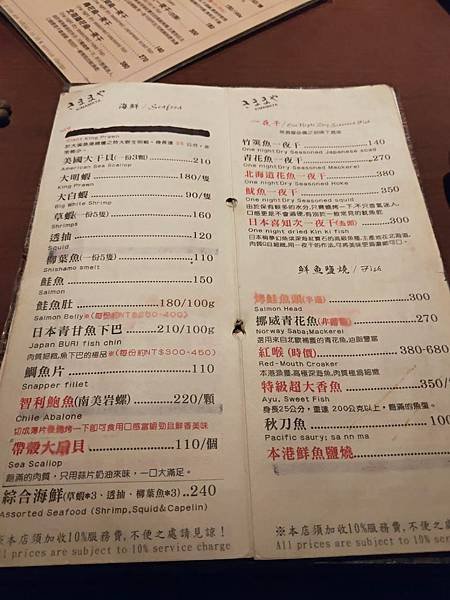 きままや
KIMAMAYA
海鮮/Seafood
Giant King Prawn
美國大干貝(一份3顆)......210
American Sea Scallop
大明蝦......180/隻
King Prawn
大白蝦......90/隻
Big White Shrimp
草蝦(一份5隻)......160
Shrimps
透抽......120
Squid
柳葉魚(一份5隻)......110
Shishamo smelt
鮭魚......150
Salmon
鮭魚肚......180/100g
Salmon Belly※(每份約NT$250-400)
日本青甘魚下巴......210/100g
Japan BURI fish chin
肉質細緻,魚下巴的極品※(每份約NT$300-450)
鯛魚片......110
Snapper fillet
智利鮑魚(南美岩螺)......220/顆
Chile Abalone
切成薄片後微烤一下即可食用口感富嚼勁且鮮香美味
帶殼大扇貝......110/個
Sea Scallop
飽滿的肉質,只用蒜片奶油來味,一口大滿足。
綜合海鮮(草蝦*3、透抽、柳葉魚*3)..240
Assorted Seafood (Shrimp,Squid&Capelin)
※本店須加收10%服務費,不便之處請見諒!
All prices are subject to 10% service charge
きままや
KIMAMAYA
一夜干/One Night Dry Seasoned Fish
竹筴魚一夜干......140
One nightDry Seasoned Japanese scad
青花魚一夜干......270
One nightDry Seasoned Mackerel
北海道花魚一夜干......380
One nightDry Seasoned Hoke
魷魚一夜干......150
One nightDry Seasoned squid
日本喜知次一夜干(魚團)......300
One night dried Kin Ki fish
鮮魚鹽燒/Fish
鮭魚頭(半邊)......300
Salmon Head
挪威青花魚(非一夜干)......270
Norway Saba;Mackerel
紅喉(時價)......380-680
Red-Mouth Croaker
特級超大香魚......350/
Ayu, Sweet Fish
身長25公分,重達 200公克以上,飽滿的魚蛋。
秋刀魚......100
Pacific saury; sa nn ma
本港鮮魚鹽燒......
※本店須加收10%服務費,不便之處
All prices are subject to 10% serv